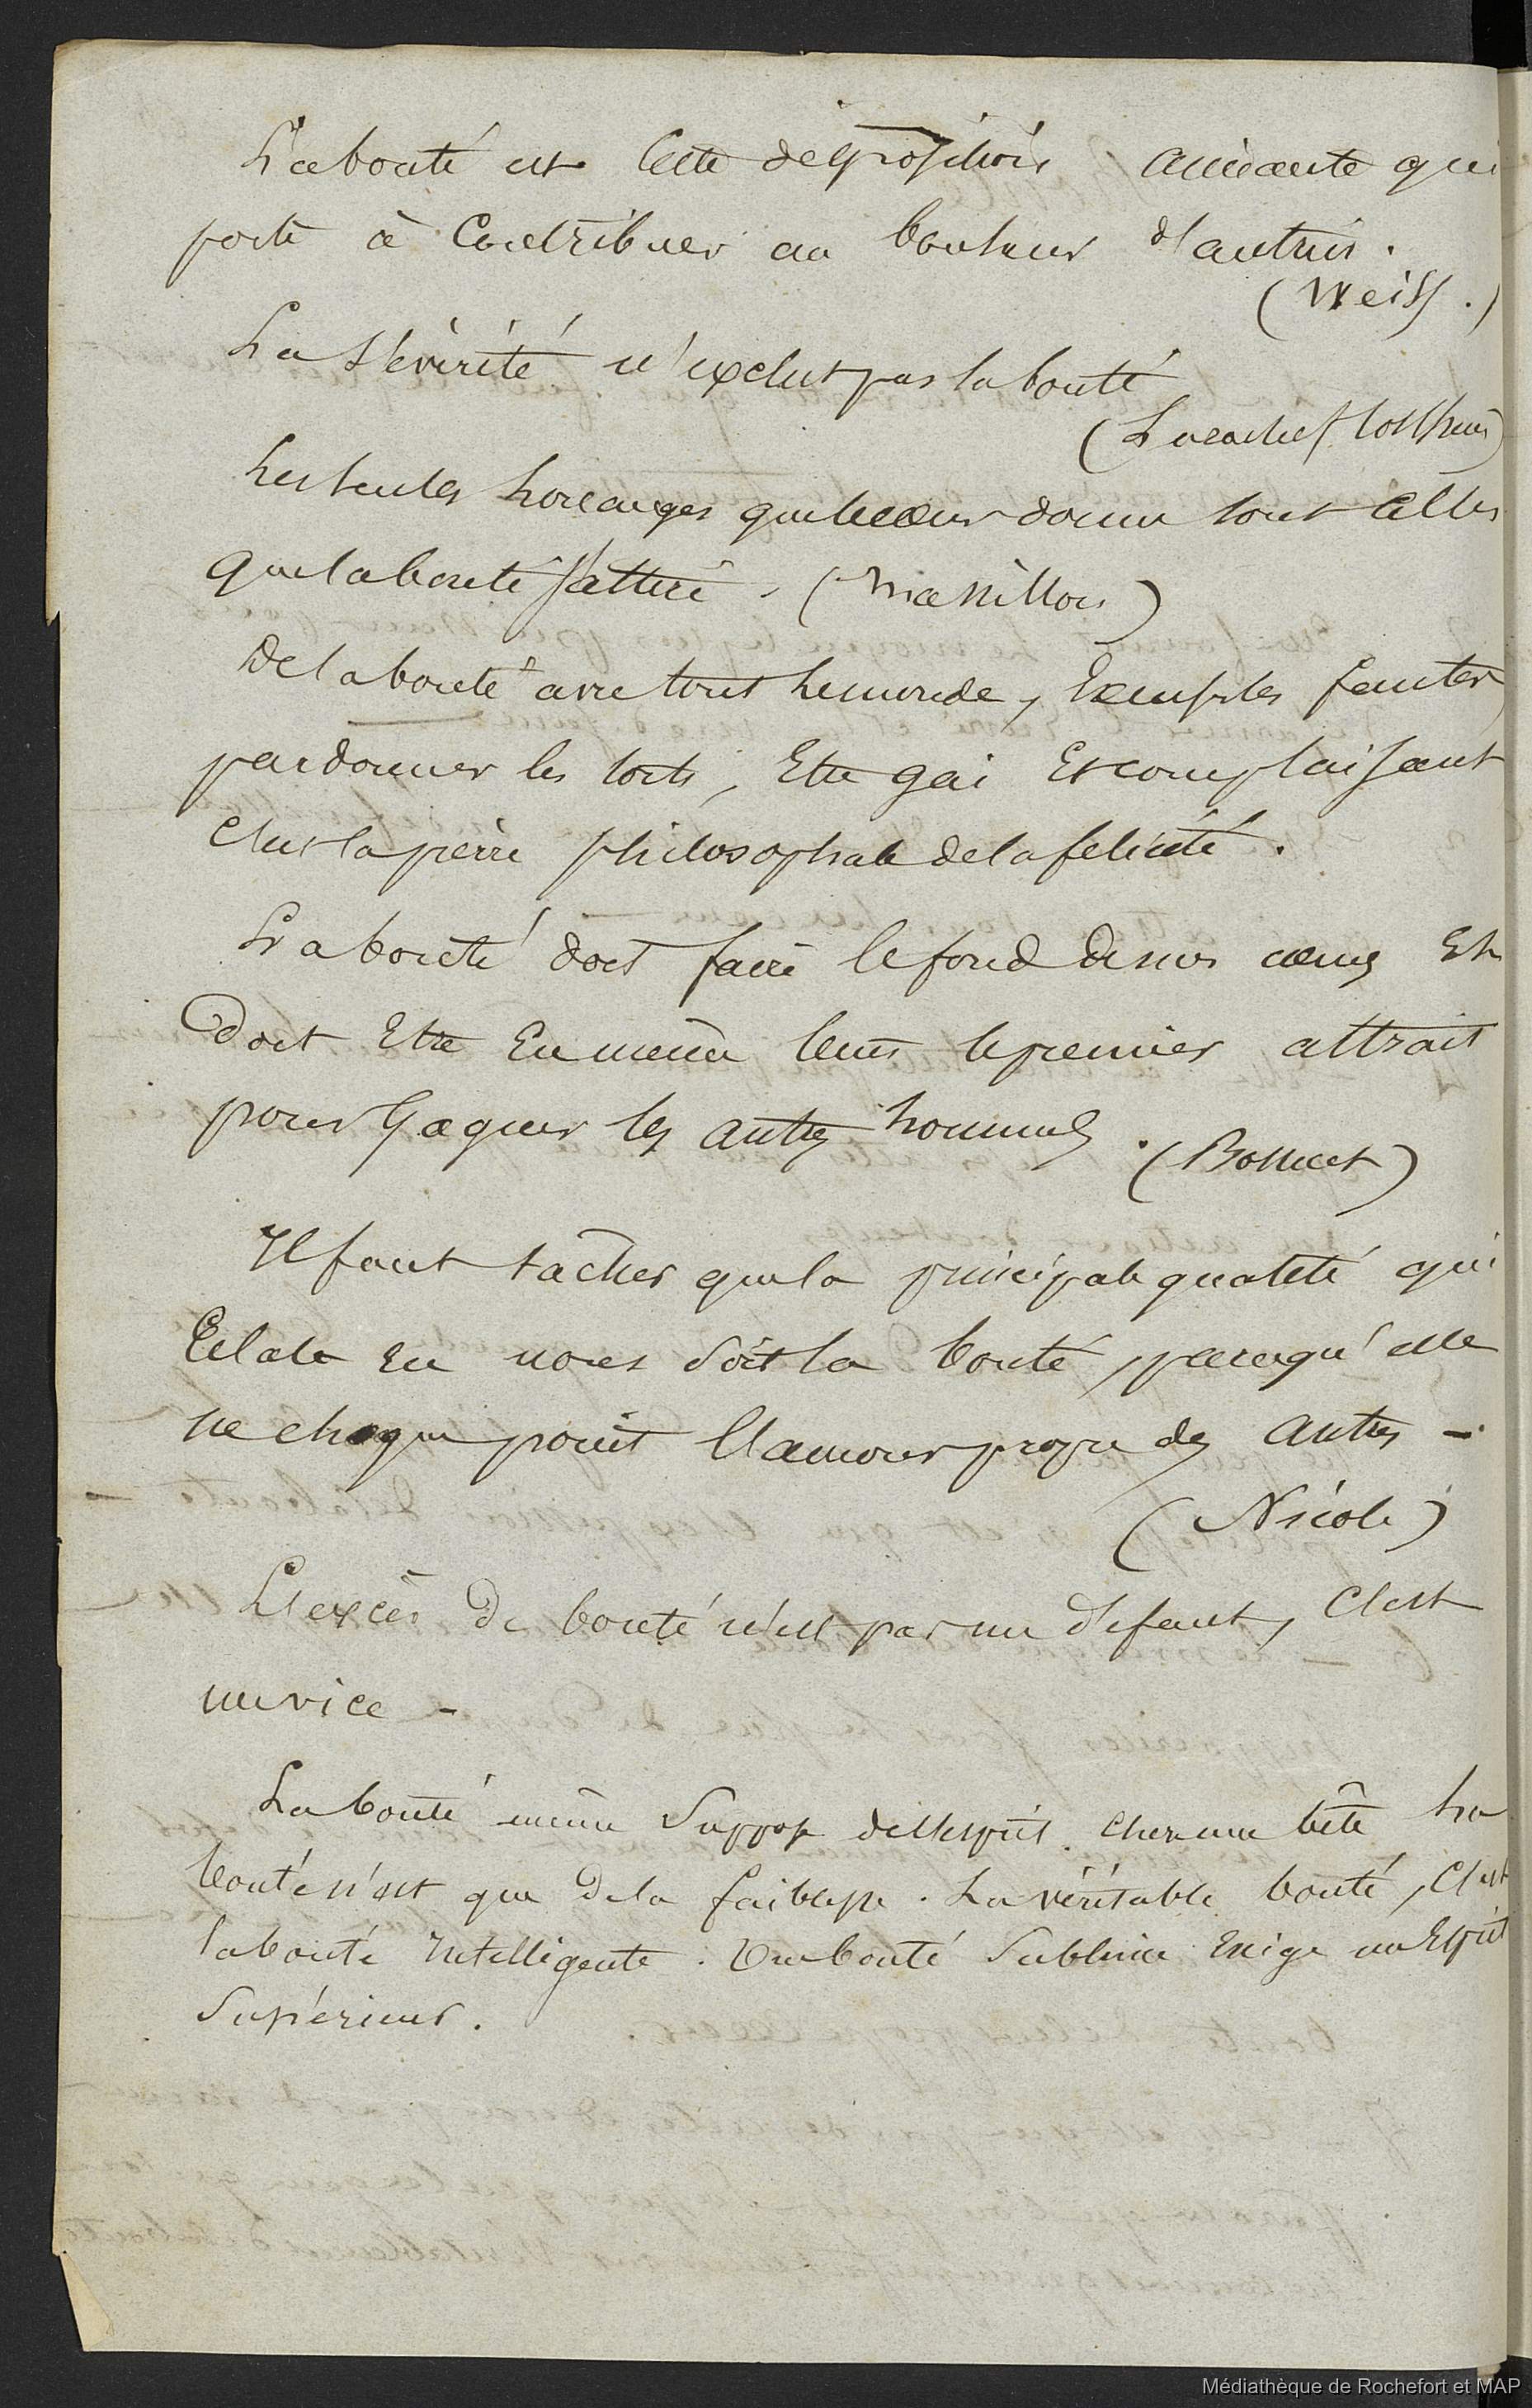 La bonté est cette disposition aimante qui
porte à contribuer au bonheur d'autrui.
(Weiss.)
La sévérité n'exclut pas la bonté
Les seules louanges que le cœur donne sont celles
que la bonté s'attire. (Massillon)
De la bonté avec tout le monde,
pardonner les torts, Etre gai Et complaisant
c'est la pierre philosophale de la félicité.
La bonté doit faire le fond de nos cœurs Et
Doit Etre En même tems le premier attrait
pour Gagner les autres hommes. (Bossuet)
Il faut tâcher que la principale qualité qui
Eclate En nous soit la bonté, parcequ'elle
ne choque point l'amour propre des autres -
(Nicole)
L'excès De bonté n'est pas un défaut, C'est
un vice -
La bonté même Suppose de l'esprit. chez une bête La
bonté n'est que De la faiblesse. La véritable bonté, C'est
la bonté Intelligente. Une bonté Sublime Exige un Esprit
Supérieur.
Médiathèque de Rochefort et MAP